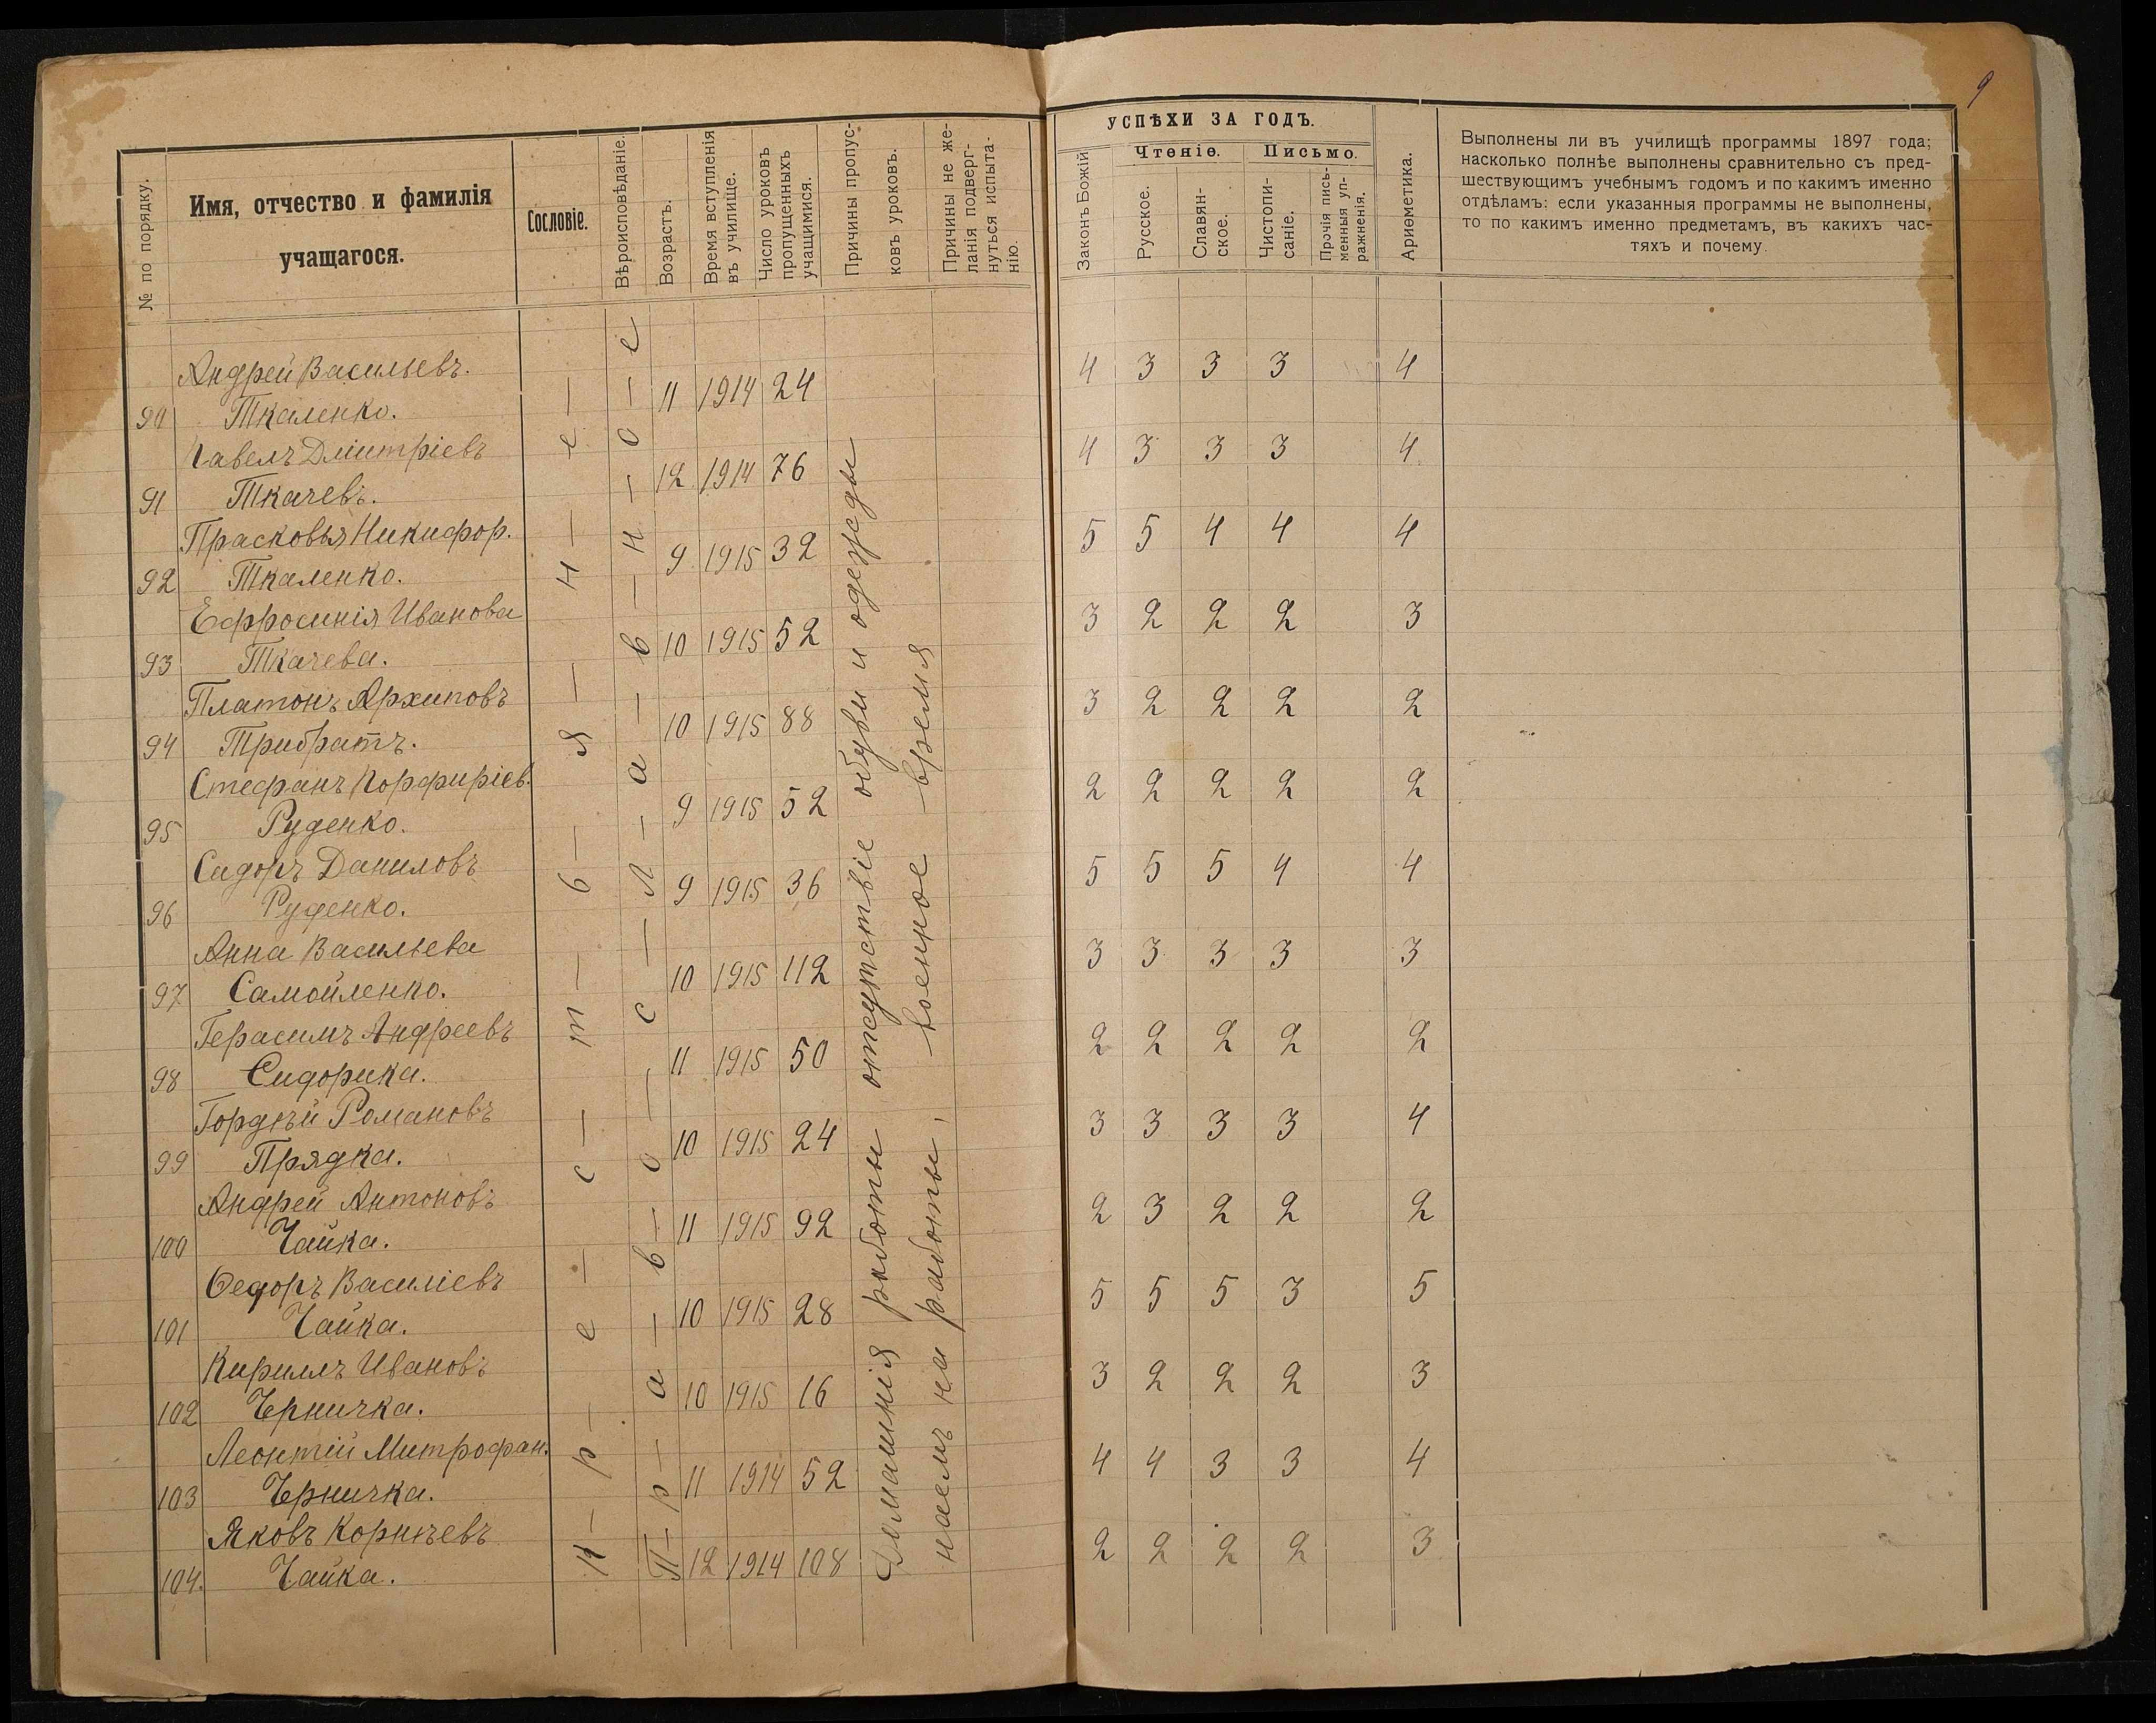 9
№ по порядку.
Имя, отчество и фамилія
учащагося.
Сословіе.
Вѣроисповѣданіе.
Возрастъ.
Время вступленія
въ училище.
Число уроковъ
пропущенныхъ
учащимися.
Причины пропус-
ковъ уроковъ.
Причины не же-
ланія подверг-
нуться испыта-
нію.
УСПѢХИ ЗА ГОДЪ.
Законъ Божій
Чтеніе.
Письмо.
Русское.
Славян-
ское.
Чистопи-
саніе.
Прочія пись-
менныя уп-
ражненія.
Ариѳметика.
Выполнены ли въ училищѣ программы 1897 года;
насколько полнѣе выполнены сравнительно съ пред-
шествующимъ учебнымъ годомъ и по какимъ именно
отдѣламъ: если указанныя программы не выполнены,
то по какимъ именно предметамъ, въ какихъ час-
тяхъ и почему.
К-р-е-с-т-ь-я-н-е-
П-р-а-в-о-с-л-а-в-н-о-е
Домашнія работы, отсутствіе обуви и одежды
наемъ на работы, - военное - время
Андрей Васильевъ.
90 Ткаленко. 11 1914 24 4 3 3 3 4
Павелъ Дмитріевъ
91 Ткачевъ. 12 1914 76 4 3 3 3 4
Прасковья Никифор.
92 Ткаленко. 9 1915 32 5 5 4 4 4
Ефросинія Иванова
93 Ткачева. 10 1915 52 3 2 2 2 3
Платонъ Архиповъ
94 Трибратъ. 10 1915 88 3 2 2 2 2
Стефанъ Порфиріев.
95 Руденко. 9 1915 52 2 2 2 2 2
Сидоръ Даниловъ
96 Руденко. 9 1915 36 5 5 5 4 4
Анна Васильева
97 Самойленко. 10 1915 112 3 3 3 3 3
Герасимъ Андреевъ
98 Сидорика. 11 1915 50 2 2 2 2 2
Гордѣй Романовъ
99 Прядка. 10 1915 24 3 3 3 3 4
Андрей Антоновъ
100 Чайка. 11 1915 92 2 3 2 2 2
Ѳедоръ Василіевъ
101 Чайка. 10 1915 28 5 5 5 3 5
Кириллъ Ивановъ
102 Черничка. 10 1915 16 3 2 2 2 3
Леонтій Митрофан.
103 Черничка. 11 1914 52 4 4 3 3 4
Яковъ Корнѣевъ
104. Чайка. 12 1914 108 2 2 2 2 3